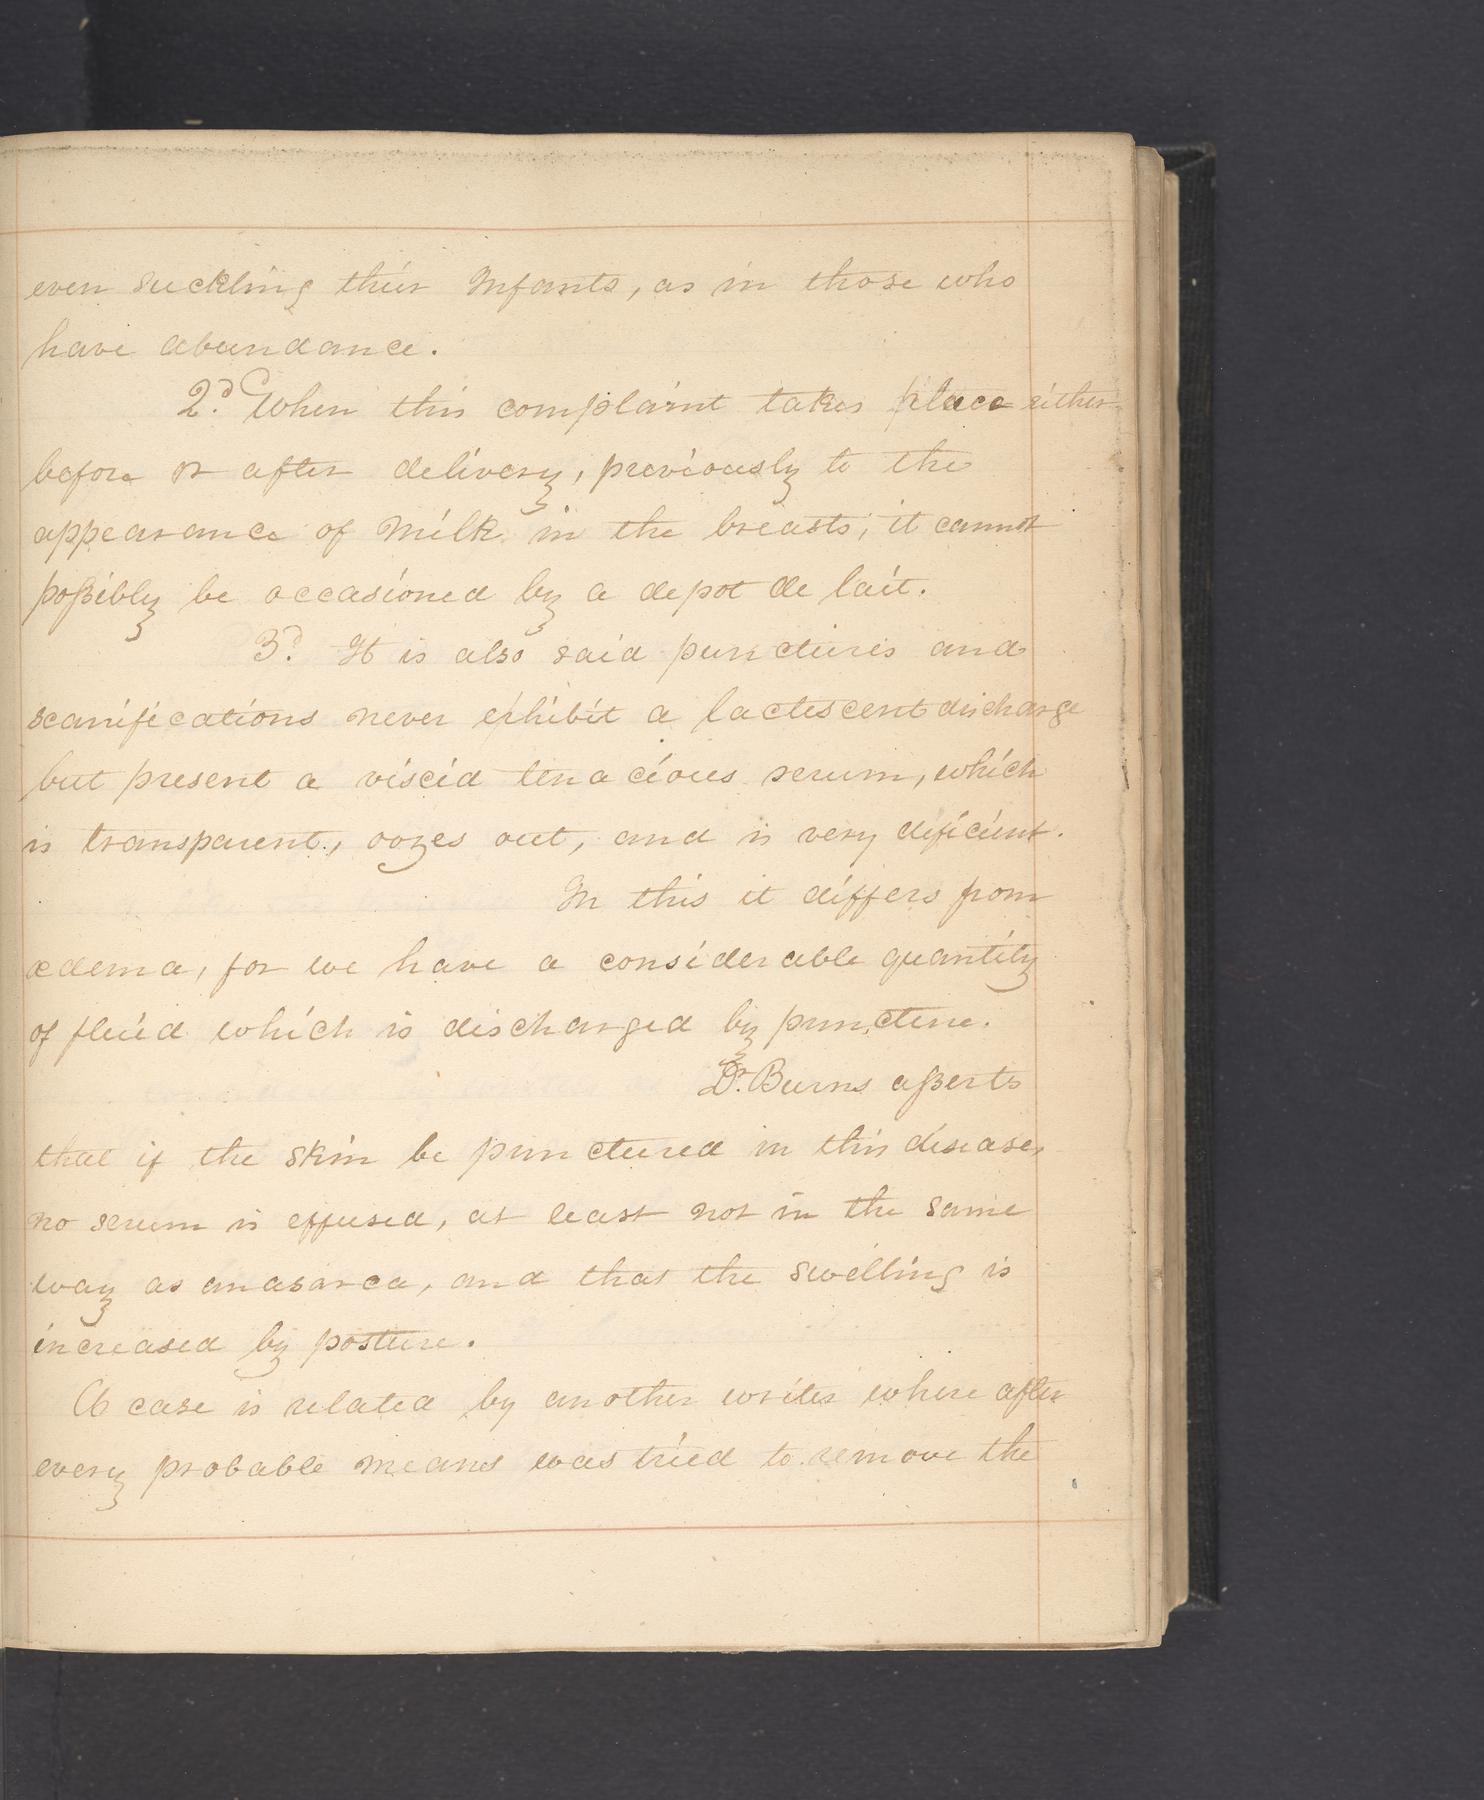 even suckling their Infants, as in those who
have abundance.
2d. When this complaint takes place either
before or after delivery, previously to the
appearance of Milk in the breasts, it cannot
poßibly be occasioned by a depot de lait.
3d. It is also said punctures and
scarifications never exhibit a lactescent discharge
but present a viscid tenacious serum, which
is transparent, oozes out, and is very deficient.
In this it differs from
œdema, for we have a considerable quantity
of fluid which is discharged by puncture.
Dr. Burns aßerts
that if the skin be punctured in this disease,
no serum is effused, at least not in the same
way as anasarca, and that the swelling is
increased by posture.
A case is related by another writer where after
every probable means was tried to remove the